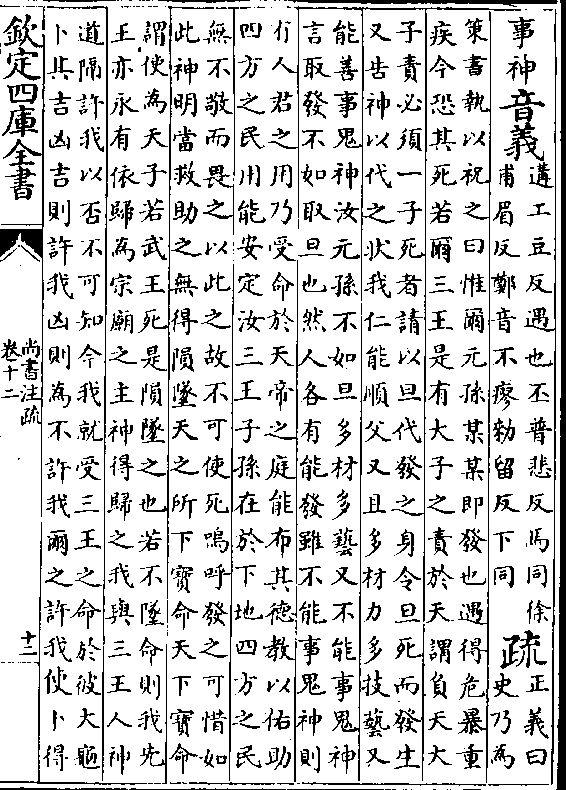 事神音義遘工豆反遇也丕普悲反馬同徐
甫眉反鄭音不瘳勑留反下同疏正義曰
史乃為
策書執以祝之曰惟爾元孫某某即發也遇得危暴重
疾今恐其死若爾三王是有大子之責於天謂負天大
子責必須一子死者請以旦代發之身令旦死而發生
又告神以代之狀我仁能順父又且多材力多技藝又
能善事鬼神汝元孫不如旦多材多藝又不能事鬼神
言取發不如取旦也然人各有能發雖不能事鬼神則
有人君之用乃受命於天帝之庭能布其德教以佑助
四方之民用能安定汝三王子孫在於下地四方之民
無不敬而畏之以此之故不可使死嗚呼發之可惜如
此神明當救助之無得隕墜天之所下寶命天下寶命
謂使為天子若武王死是隕墜之也若不墜命則我先
王亦永有依歸為宗廟之主神得歸之我與三王人神
道隔許我以否不可知今我就受三王之命於彼大龜
卜其吉凶吉則許我凶則為不許我爾之許我使卜得
欽定四庫全書
尚書注疏
卷十二
十二